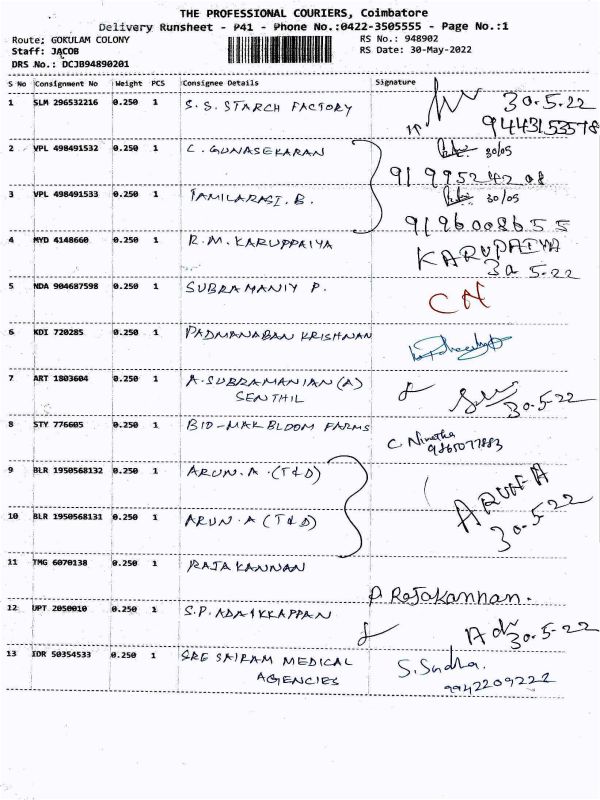 THE PROFESSIONAL COURIERS, Coimbatore
Delivery Runsheet - P41 - Phone No.:0422-3505555 - Page No.:1
Route: GOKULAM COLONY RS No.: 948902
Staff: JACOB RS Date: 30-May-2022
DRS No.: DCJB94890201
S No Consignment No Weight PCS Consignee Details Signature
1 SLM 296532216 0.250 1 S.S. STARCH FACTORY 30.5.22
9443153578
2 VPL 498491532 0.250 1 C. GUNASEKARAN 30/05
91 995242 08
3 VPL 498491533 0.250 1 TAMILARASI.B. 30/05
9196008655
4 MYD 4148660 0.250 1 R.M. KARUPPAIYA KARUPAIYA
30 5-22
5 NDA 904687598 0.250 1 SUBRAMANIY P. CN
6 KDI 720285 0.250 1 PADMANABAN KRISHNAN
7 ART 1803604 0.250 1 A.SUBRAMANIAN (A)
SENTHIL 30.5-22
8 STY 776605 0.250 1 BIO-MAK BLOOM FARMS C. Nivetha
9865077883
9 BLR 1950568132 0.250 1 ARUN.A.(T&D) ARUN-A
10 BLR 1950568131 0.250 1 ARUN.A (T&D) 30-5-22
11 TMG 6070138 0.250 1 RAJA KANNAN P. RajaKannan.
12 UPT 2050010 0.250 1 S.P. ADAIKKAPPAN 30.5-22
13 IDR 50354533 0.250 1 SRE SAIRAM MEDICAL S. Sudha.
AGENCIES 9942209222